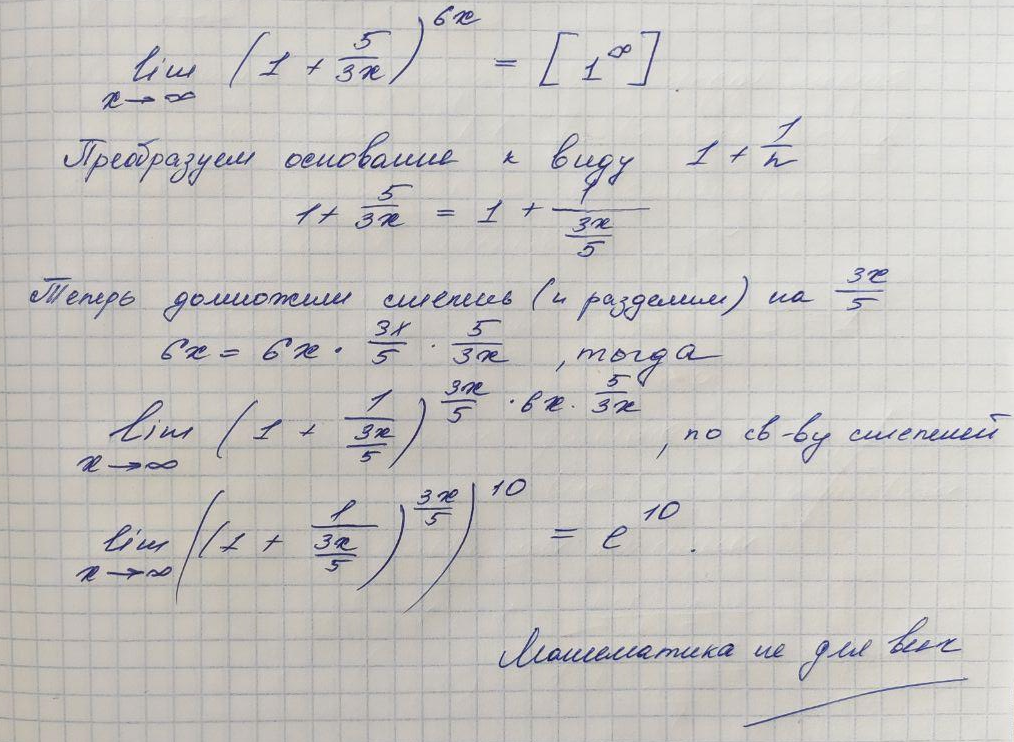 lim x→∞ (1 + 5/3x)^6x = [1^∞].
Преобразуем основание к виду 1 + 1/n
1 + 5/3x = 1 + 1/(3x/5)
Теперь домножим степень (и разделим) на 3x/5
6x = 6x · 3x/5 · 5/3x , тогда
lim x→∞ (1 + 1/(3x/5))^(3x/5 · 6x · 5/3x) , по св-ву степеней
lim x→∞ ((1 + 1/(3x/5))^(3x/5))^10 = e^10.
Математика не для всех